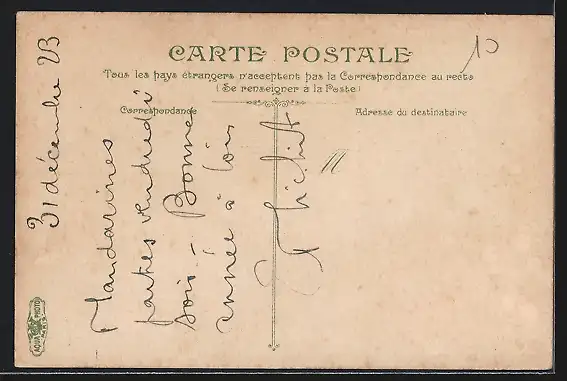 CARTE POSTALE
Tous les pays étrangers n'acceptent pas la Correspondance au recto
(Se renseigner à la Poste)
Correspondance
Adresse du destinataire
10
31 décembre 23
Mandarines
parties vendredi
soir - Bonne
année à tous
AQUA PHOTO
PARIS